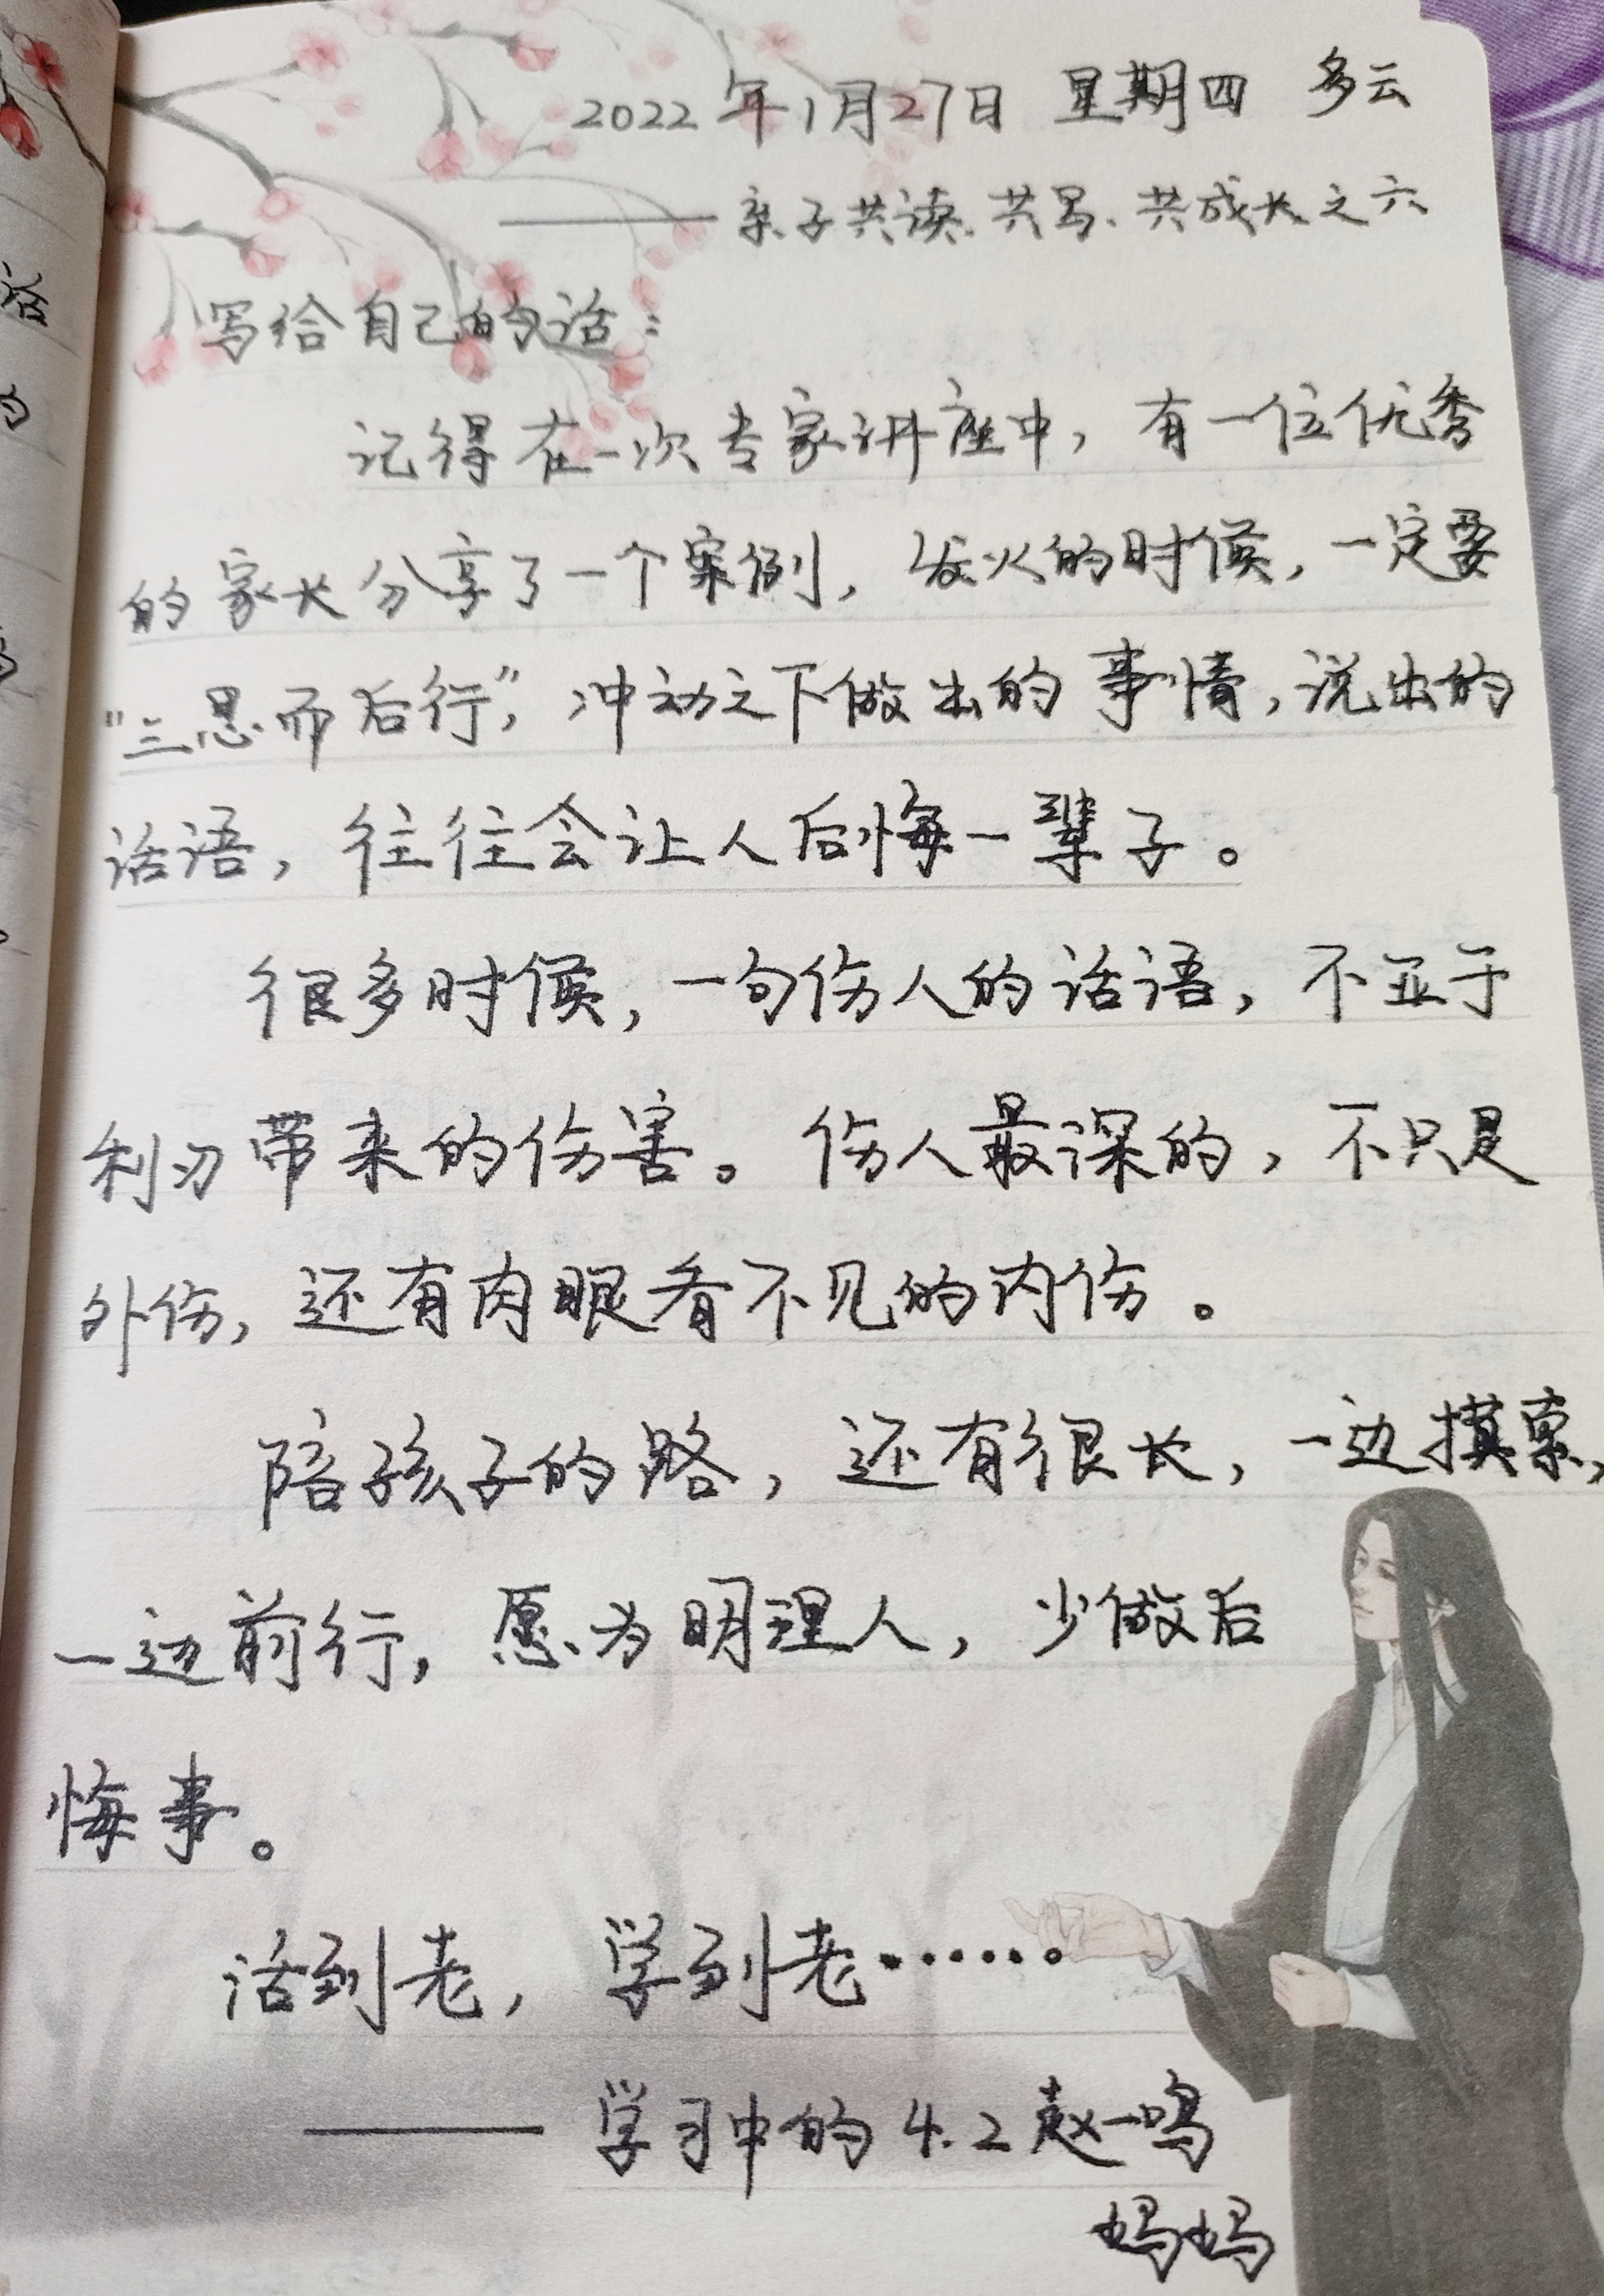 2022年1月27日 星期四 多云
——亲子共读、共写、共成长之六
写给自己的话：
记得在一次专家讲座中，有一位优秀
的家长分享了一个案例，发火的时候，一定要
“三思而后行”，冲动之下做出的事情，说出的
话语，往往会让人后悔一辈子。
很多时候，一句伤人的话语，不亚于
利刃带来的伤害。伤人最深的，不只是
外伤，还有肉眼看不见的内伤。
陪孩子的路，还有很长，一边摸索，
一边前行，愿为明理人，少做后
悔事。
活到老，学到老……。
——学习中的4.2赵一鸣
妈妈